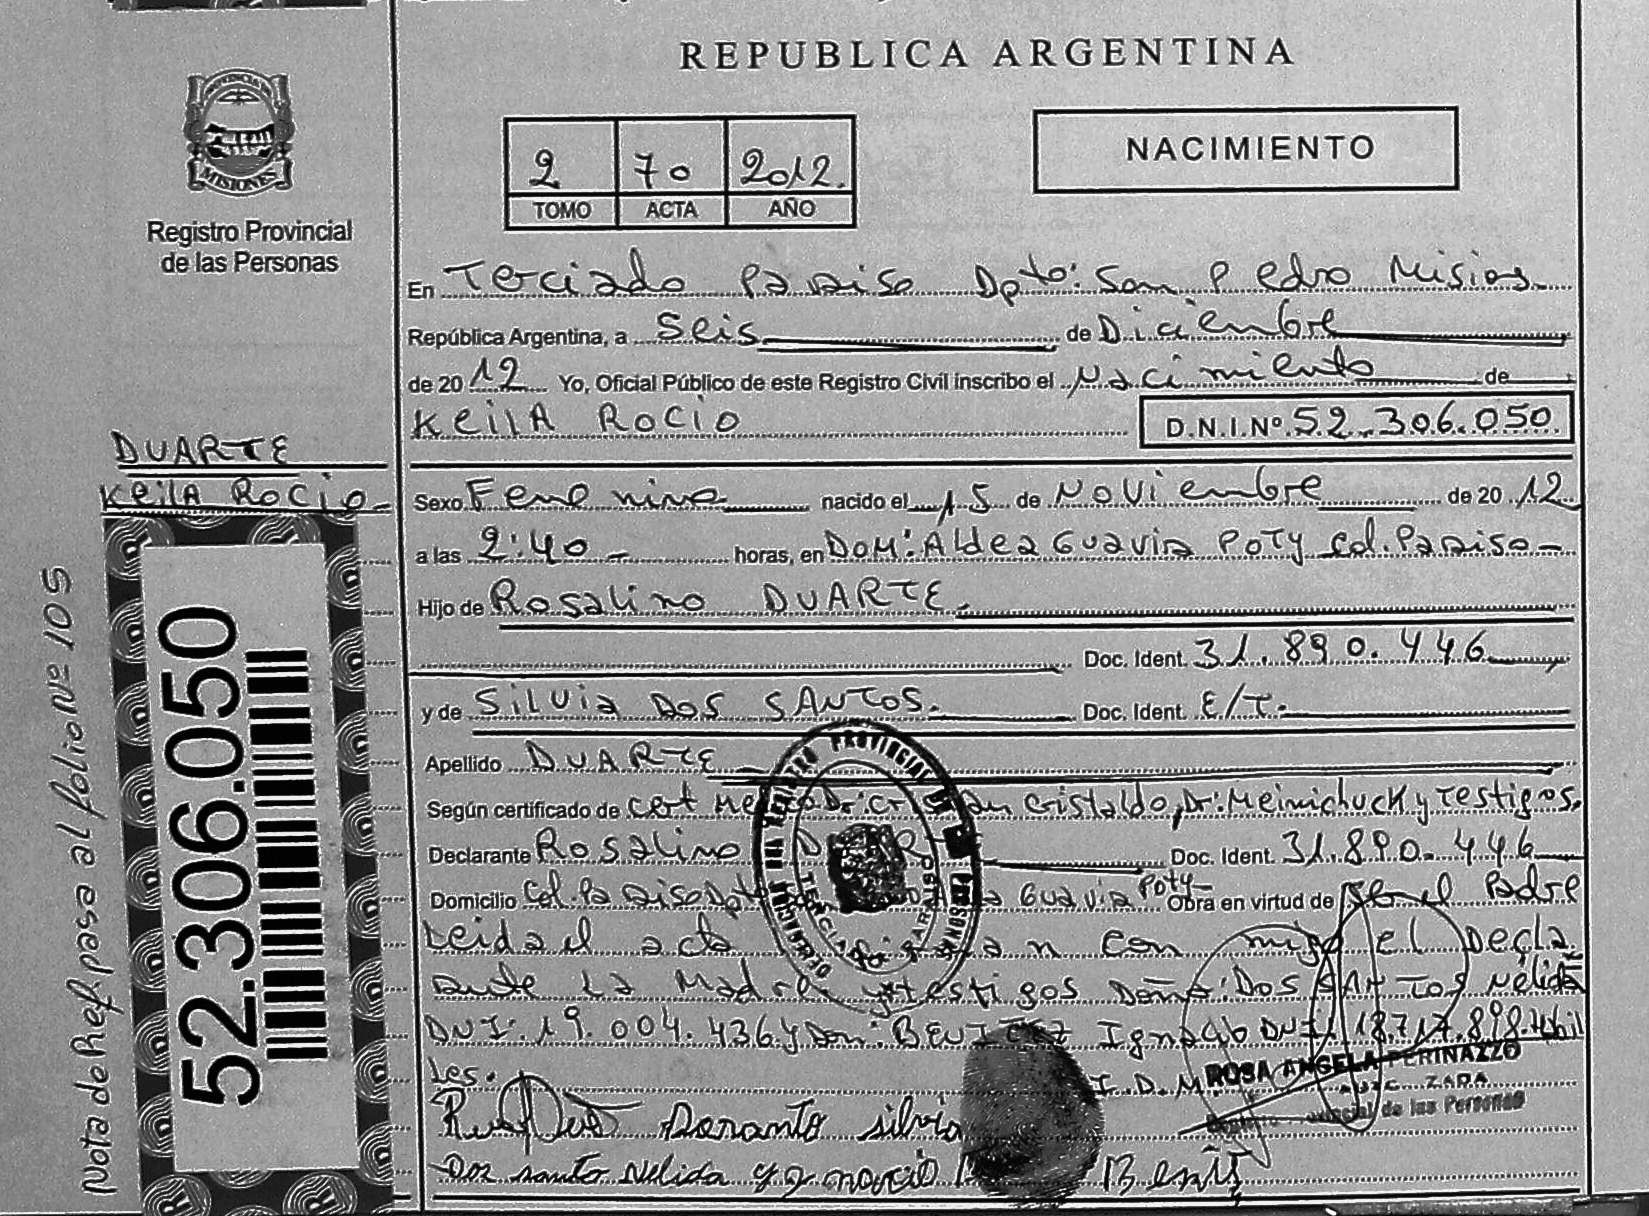 REPUBLICA ARGENTINA
MISIONES
Registro Provincial
de las Personas
2 70 2012.
TOMO ACTA AÑO
NACIMIENTO
En Terciado Paraiso Dpto: San Pedro Misios.
República Argentina, a Seis de Diciembre
de 2012 Yo, Oficial Público de este Registro Civil inscribo el Nacimiento de
Keila Rocio D.N.I.Nº 52.306.050
DUARTE
Keila Rocio
Sexo Femenino nacido el 15 de Noviembre de 2012
a las 2:40 horas, en Dom: Aldea Guavira Poty Col. Paraiso
Hijo de Rosalino DUARTE.
Doc. Ident. 31.890.446
y de Silvia DOS SANTOS. Doc. Ident. E/T.
Apellido DUARTE
Según certificado de Cert Dr: Cristaldo, Dr: Meinichuck y Testigos.
Declarante Rosalino Doc. Ident. 31.890.446
Domicilio Col. Paraiso Dpto Guavira Poty Obra en virtud de Ser el Padre
Leida el acta con migo el Decla
rante La Madre y testigos Doña: DOS SANTOS Nélida
DNI: 19.004.436 y Don: BENITEZ Ignacio DNI: 18.717.898. Habil
Les. I.D.M.
ROSA ANGELA PERINAZZO
Provincial de las Personas
Dos santo silvia
Dos santo Nelida y Benis
52.306.050
Nota de Ref. pasa al folio Nº 105